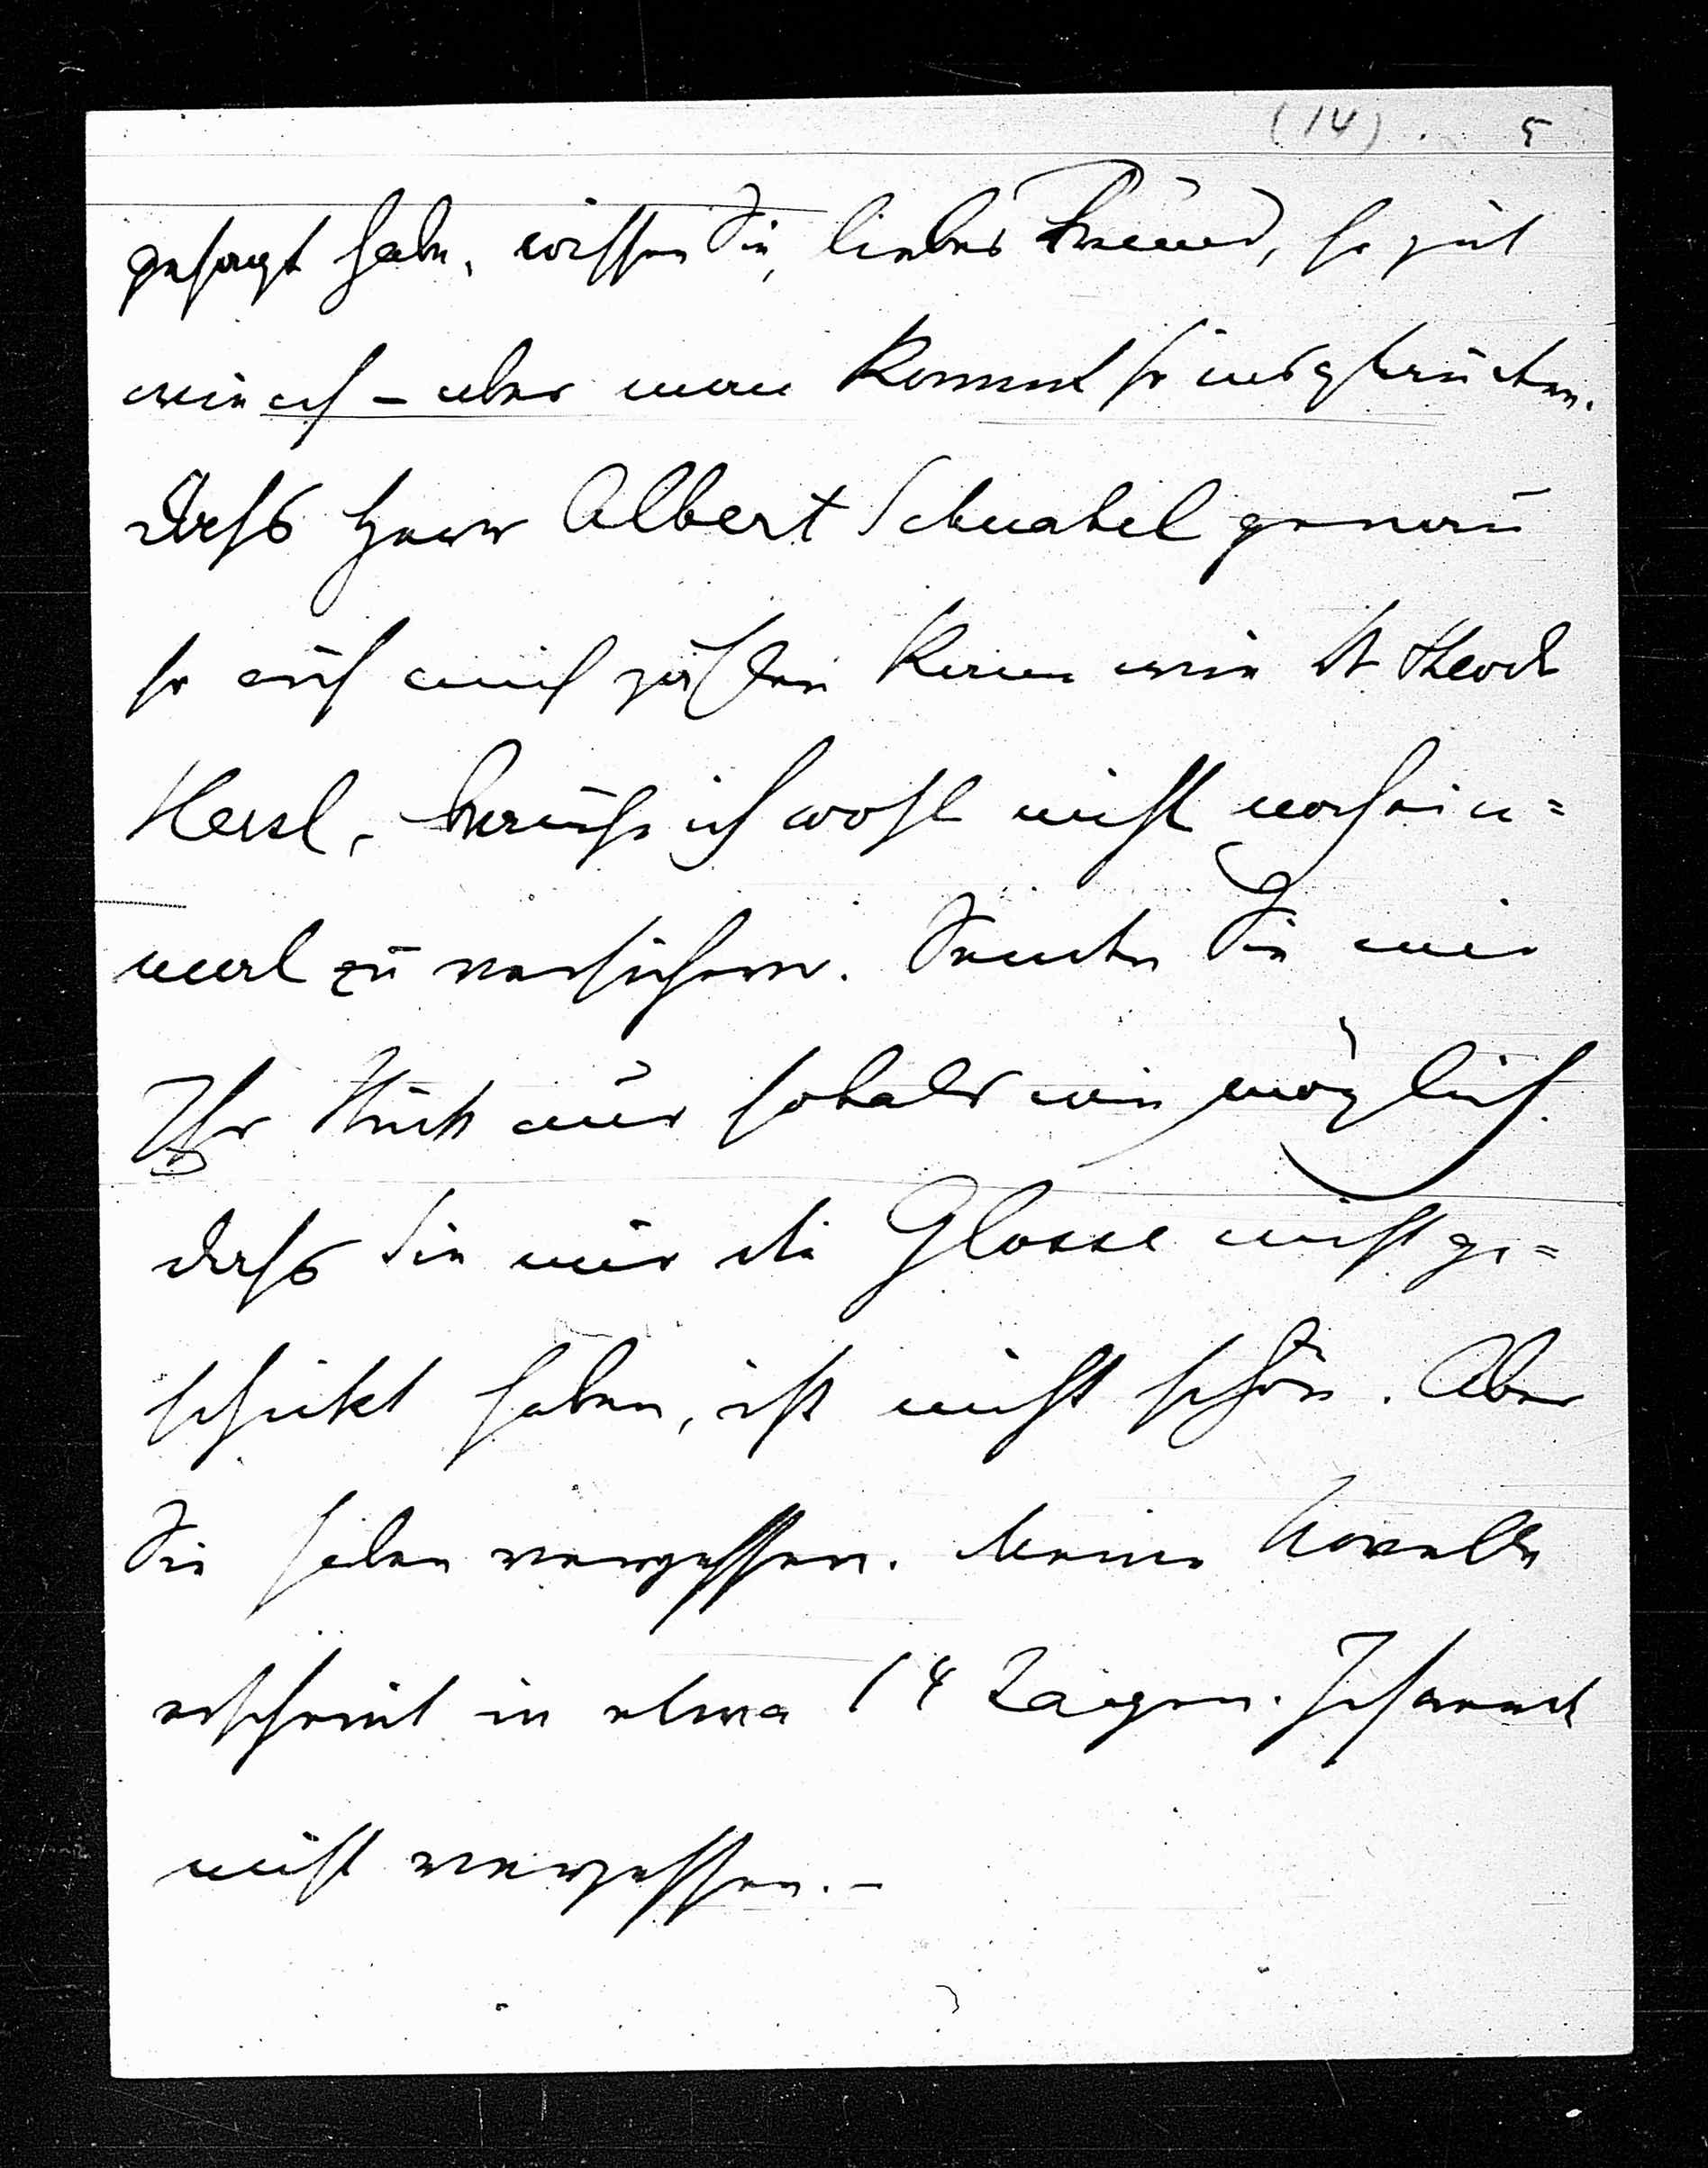 (14). 5
gesagt habe, wissen Sie, lieber Freund, so gut
wie ich – aber man kommt so ins
Dass Herr Albert Schnabel genau
so auf mich zählen kann wie Dr Theod
Herzl, brauche ich wohl nicht noch ein=
mal zu versichern. Senden Sie mir
Ihr Stück nur sobald wie möglich.
Dass Sie mir die Glosse nicht ge=
schickt haben, ist nicht schön. Aber
Sie haben vergessen. Meine Novelle
erscheint in etwa 14 Tagen. Ich werd
nicht vergessen. –